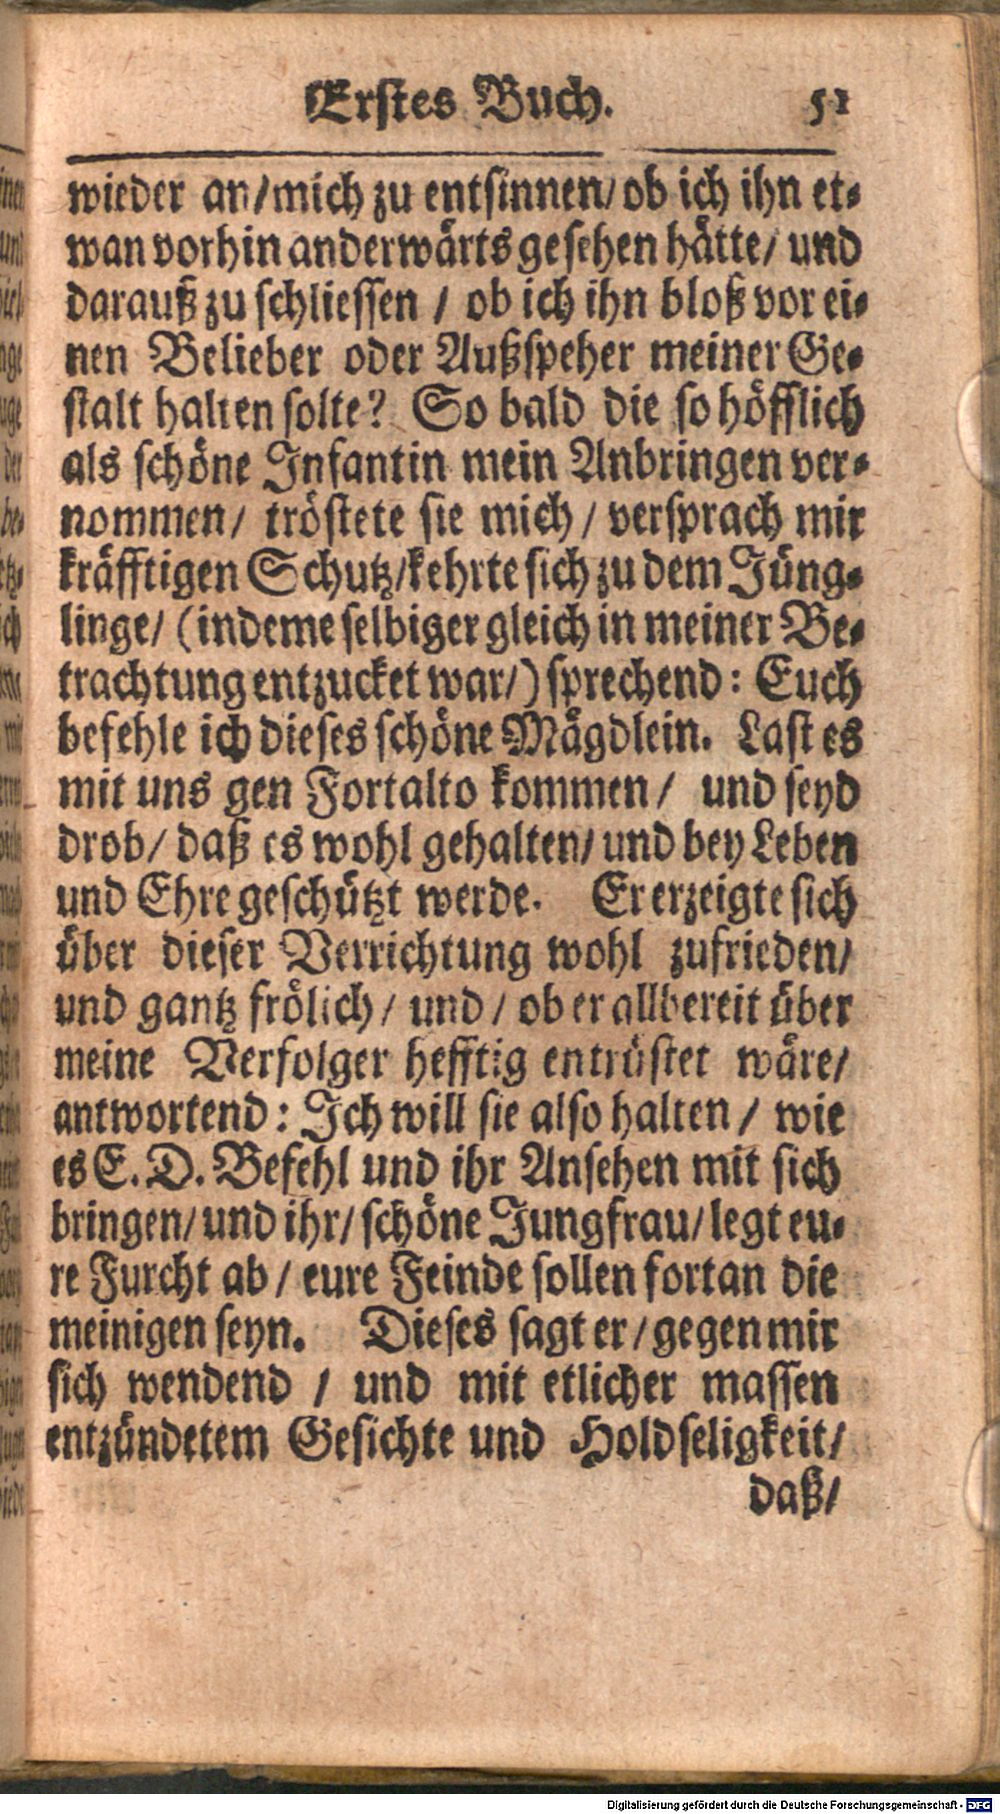 Erstes Buch. 51
wieder an/mich zu entsinnen/ob ich ihn et-
wan vorhin anderwärts gesehen hätte/ und
darauß zu schliessen / ob ich ihn bloß vor ei-
nen Belieber oder Außspeher meiner Ge-
stalt halten solte? So bald die so höfflich
als schöne Infantin mein Anbringen ver-
nommen/ tröstete sie mich/ versprach mir
kräfftigen Schutz/kehrte sich zu dem Jüng-
linge/ (indeme selbiger gleich in meiner Be-
trachtung entzucket war/) sprechend: Euch
befehle ich dieses schöne Mägdlein. Last es
mit uns gen Fortalto kommen/ und seyd
drob/ daß es wohl gehalten/ und bey Leben
und Ehre geschützt werde. Er erzeigte sich
über dieser Verrichtung wohl zufrieden/
und gantz frölich/ und / ob er allbereit über
meine Verfolger hefftig entrüstet wäre/
antwortend: Ich will sie also halten / wie
es E. D. Befehl und ihr Ansehen mit sich
bringen/ und ihr/ schöne Jungfrau/ legt eu-
re Furcht ab / eure Feinde sollen fortan die
meinigen seyn. Dieses sagt er /gegen mir
sich wendend / und mit etlicher massen
entzündetem Gesichte und Holdseligkeit/
daß/
Digitalisierung gefördert durch die Deutsche Forschungsgemeinschaft - DFG